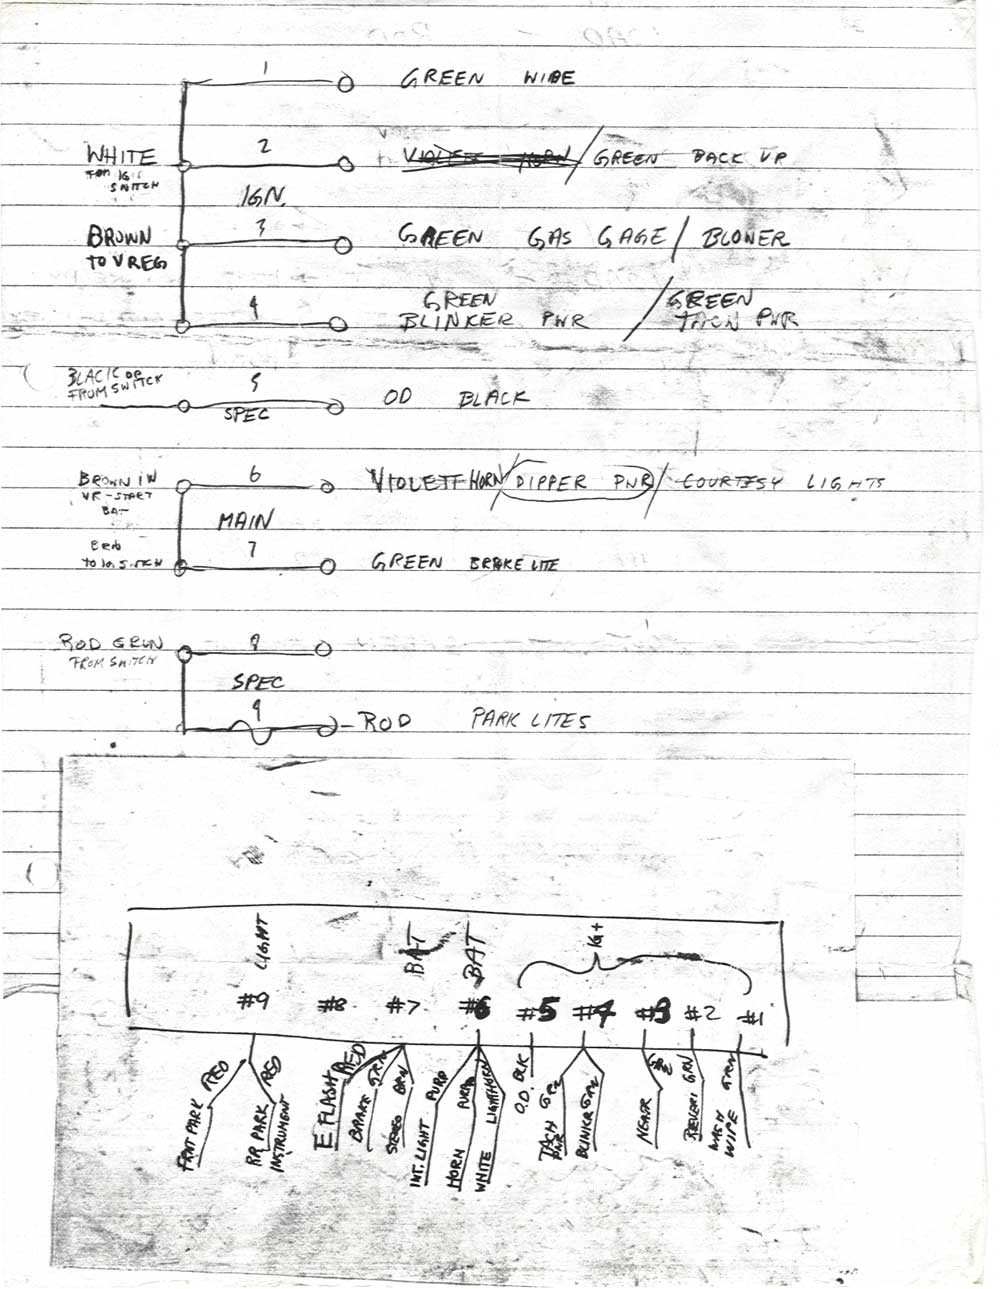 1
GREEN WIPE
WHITE
FROM IG
SWITCH
2
VIOLETT HORN / GREEN BACK UP
IGN.
BROWN
TO V REG
3
GREEN GAS GAGE / BLOWER
4
GREEN
BLINKER PWR / GREEN
TACH PWR
BLACK OD
FROM SWITCH
5
SPEC
OD BLACK
BROWN IN
VR-START
BAT
6
VIOLETT HORN / DIPPER PWR / COURTESY LIGHTS
MAIN
TO IG. SWITCH
7
GREEN BRAKE LITE
ROD GRUN
FROM SWITCH
8
SPEC
9
-ROD PARK LITES
LIGHT
BAT
BAT
IG+
#9 #8 #7 #6 #5 #4 #3 #2 #1
FRNT PARK RED
RR PARK RED
INSTRUMENT
E. FLASH RED
BRAKE GRN
STEREO BRN
INT. LIGHT PURP
HORN PURP
WHITE LIGHT HORN
O.D. BLK
TACH GRN
PWR
BLINKR GRN
HEATR
REVERS GRN
WASH GRN
WIPE